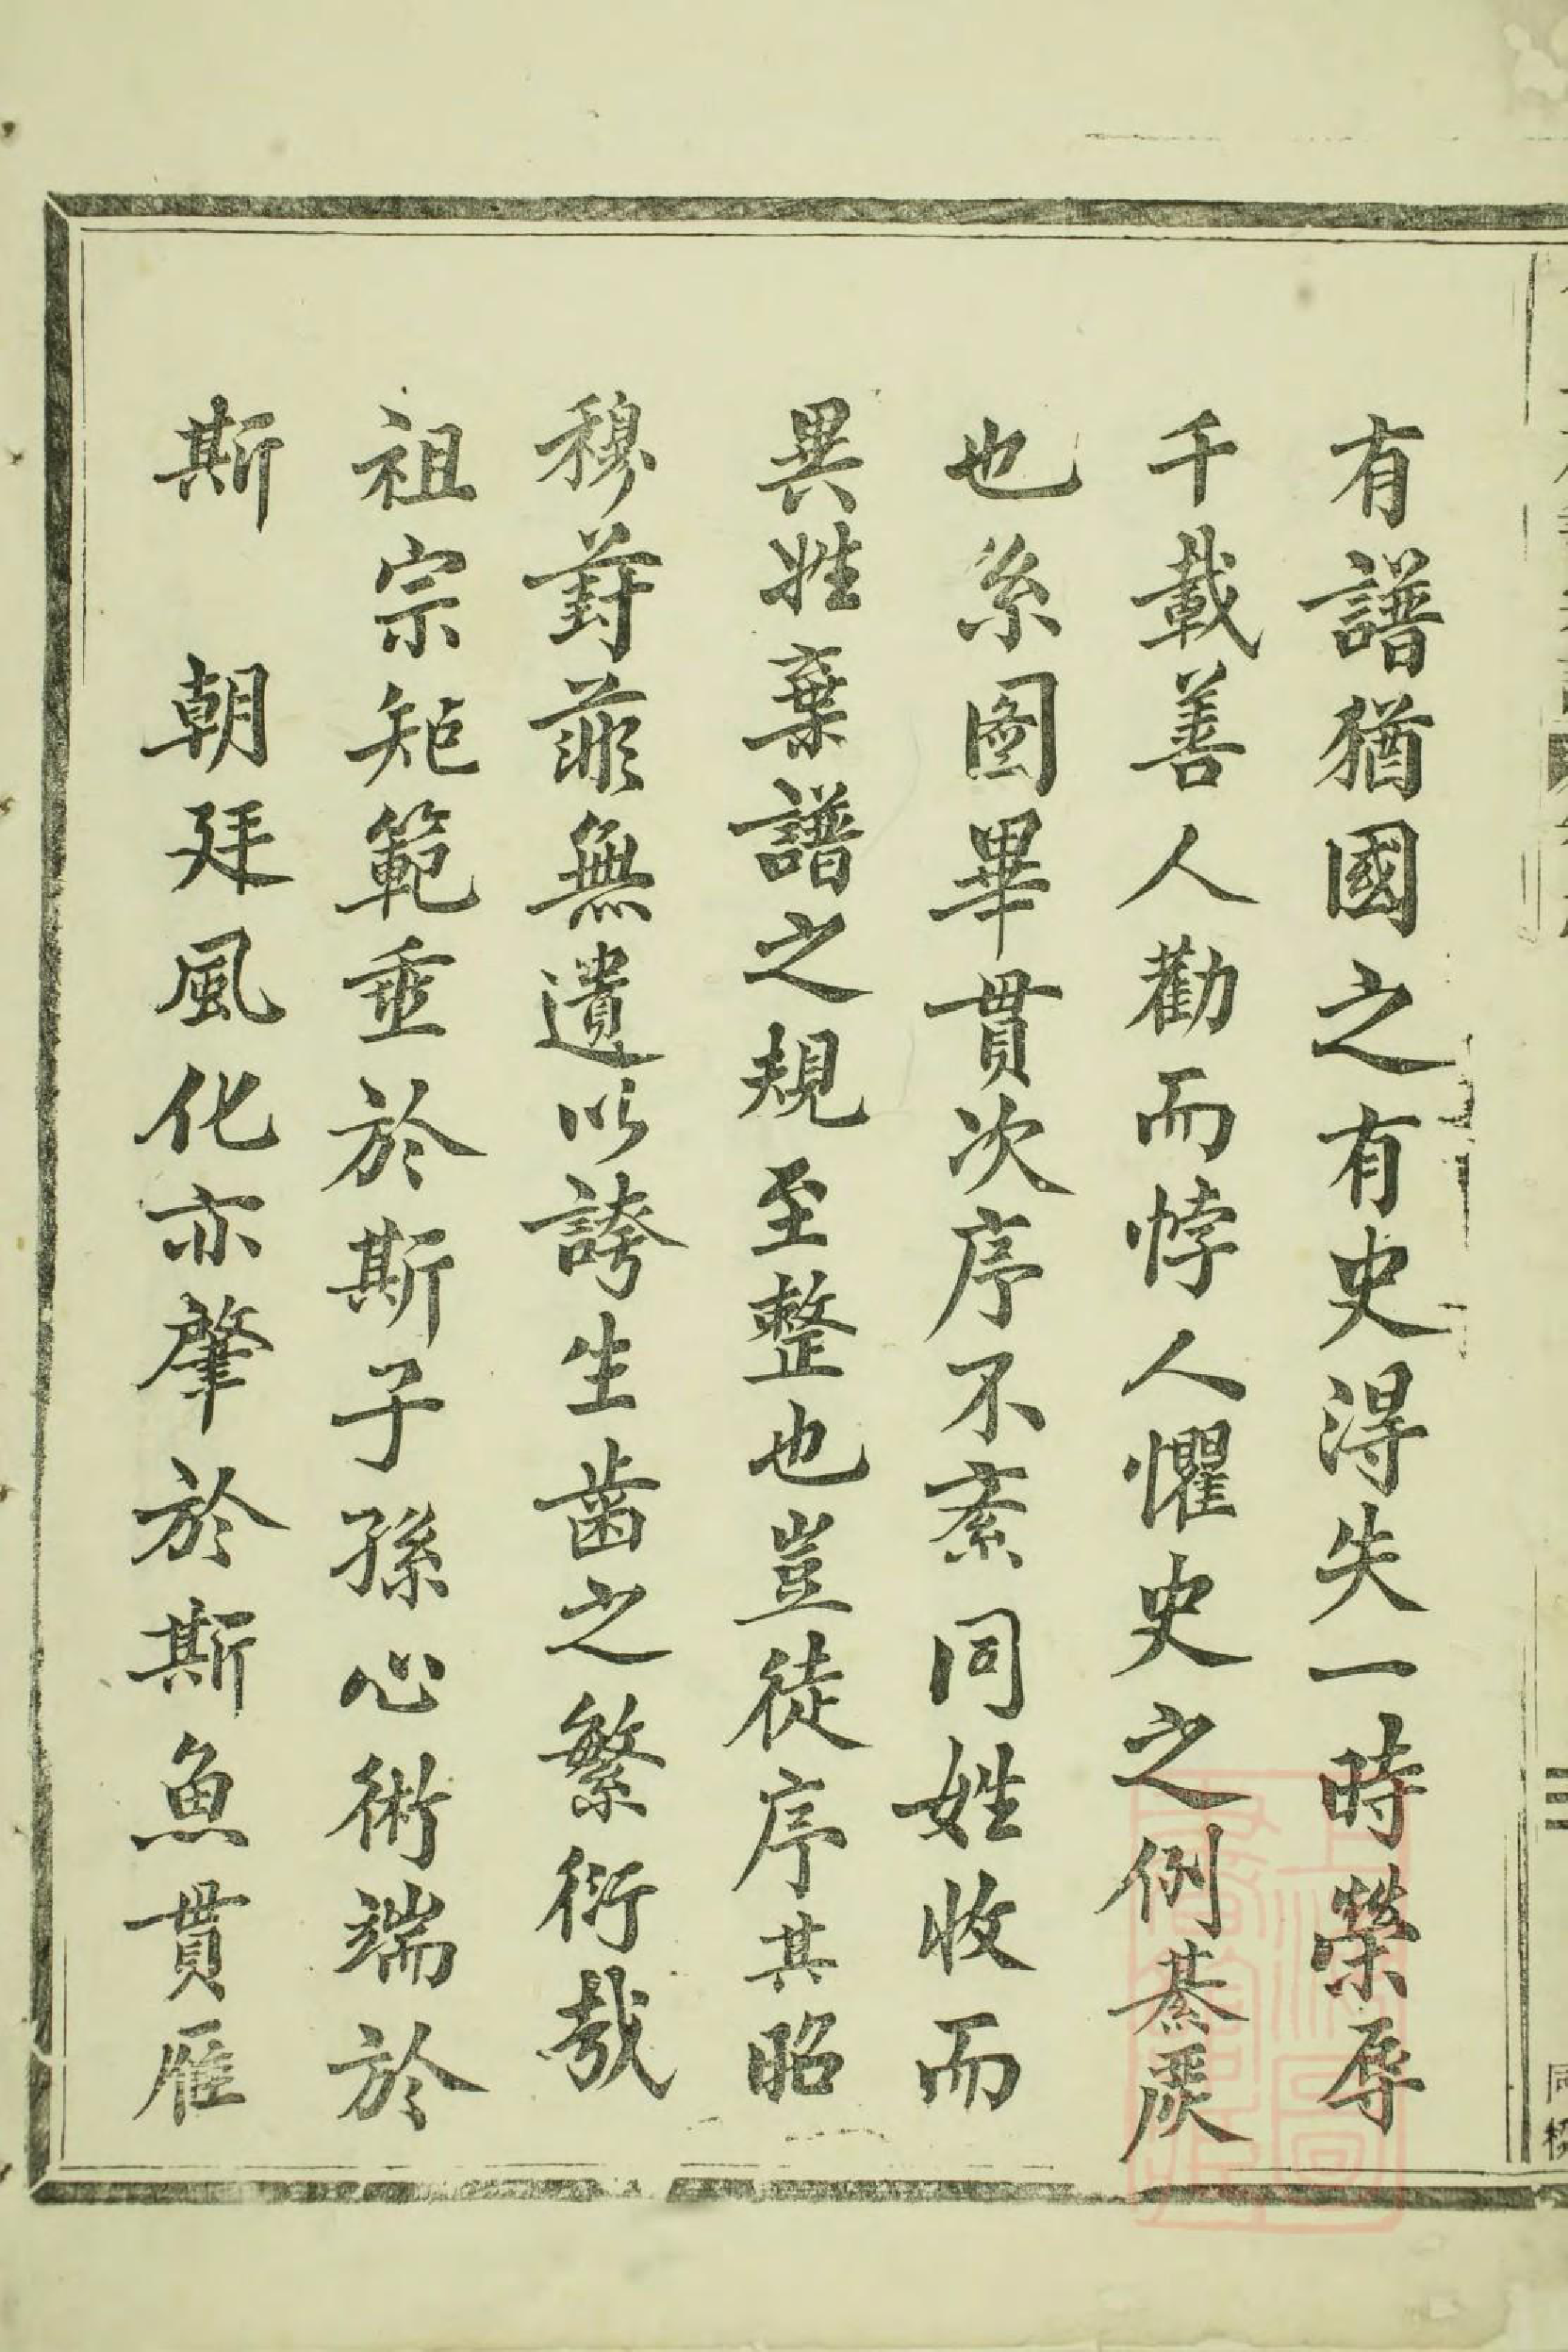 有譜猶國之有史淂失一時榮辱
千載善人勸而悖人懼史之例綦嚴
也系圖畢貫次序不紊同姓收而
異姓棄譜之規至整也豈徒序其昭
穆葑菲無遺以誇生齒之繁衍哉
祖宗矩範垂於斯子孫心術端於
斯　朝廷風化亦肇於斯魚貫雁
三